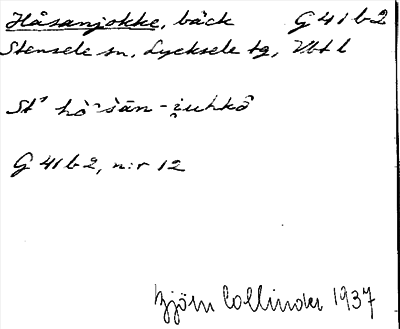 Håsanjokke, bäck G 41 b 2
Stensele sn, Lycksele tg, Vbt l
St' hò̀sān-i̯uhkô
G 41 b 2, n:r 12
Björn Collinder 1937